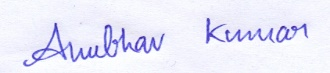 Anubhav Kumar